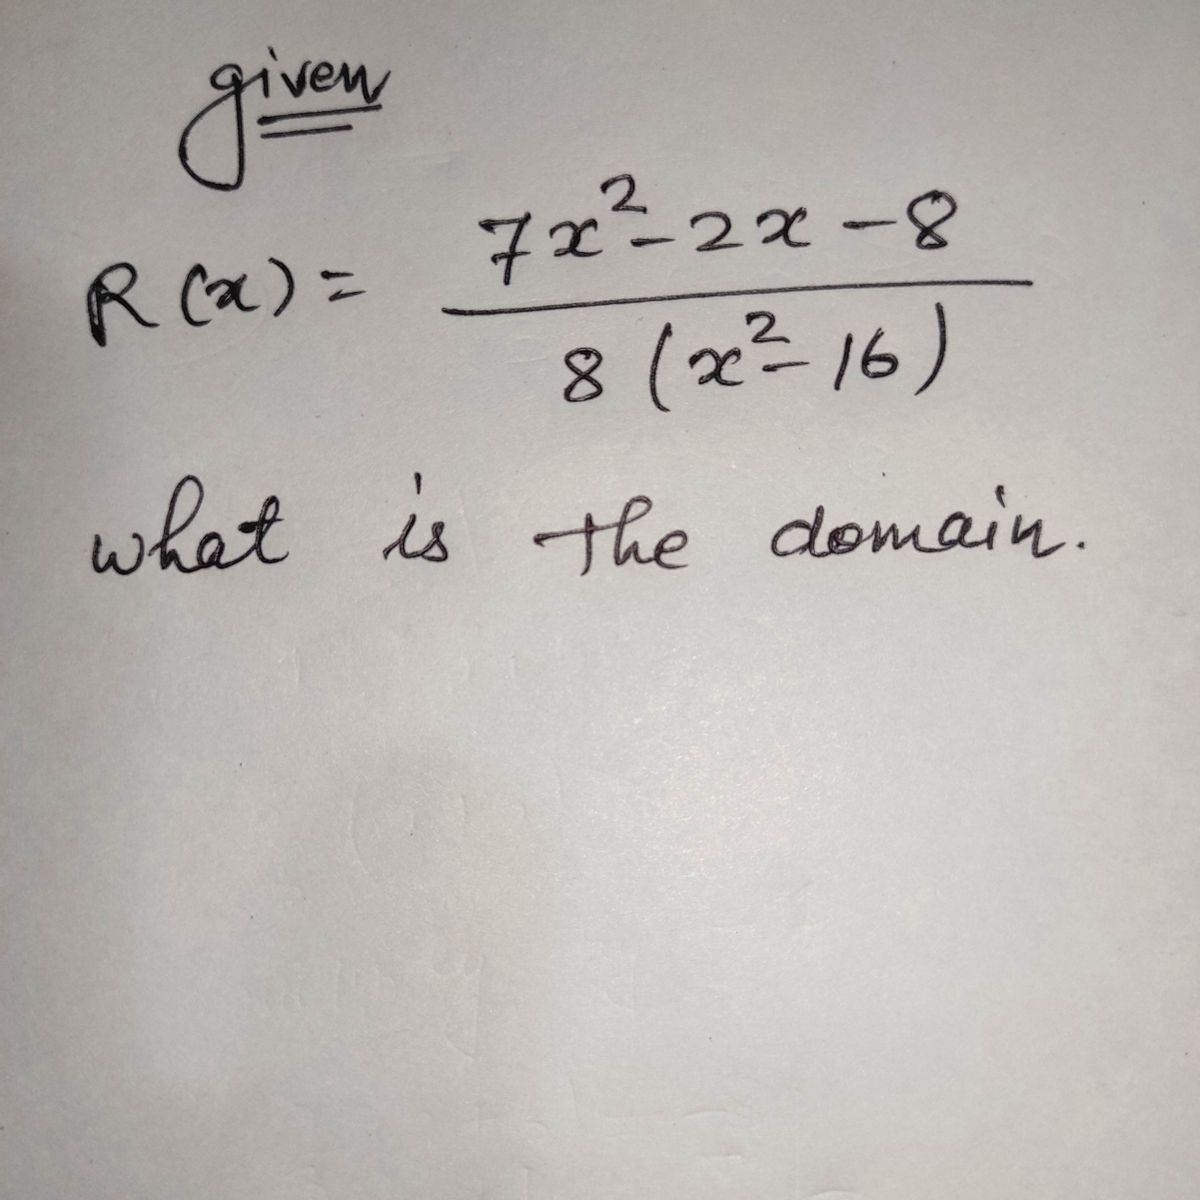 given
R(x) = 7x²-2x-8 / 8(x²-16)
what is the domain.